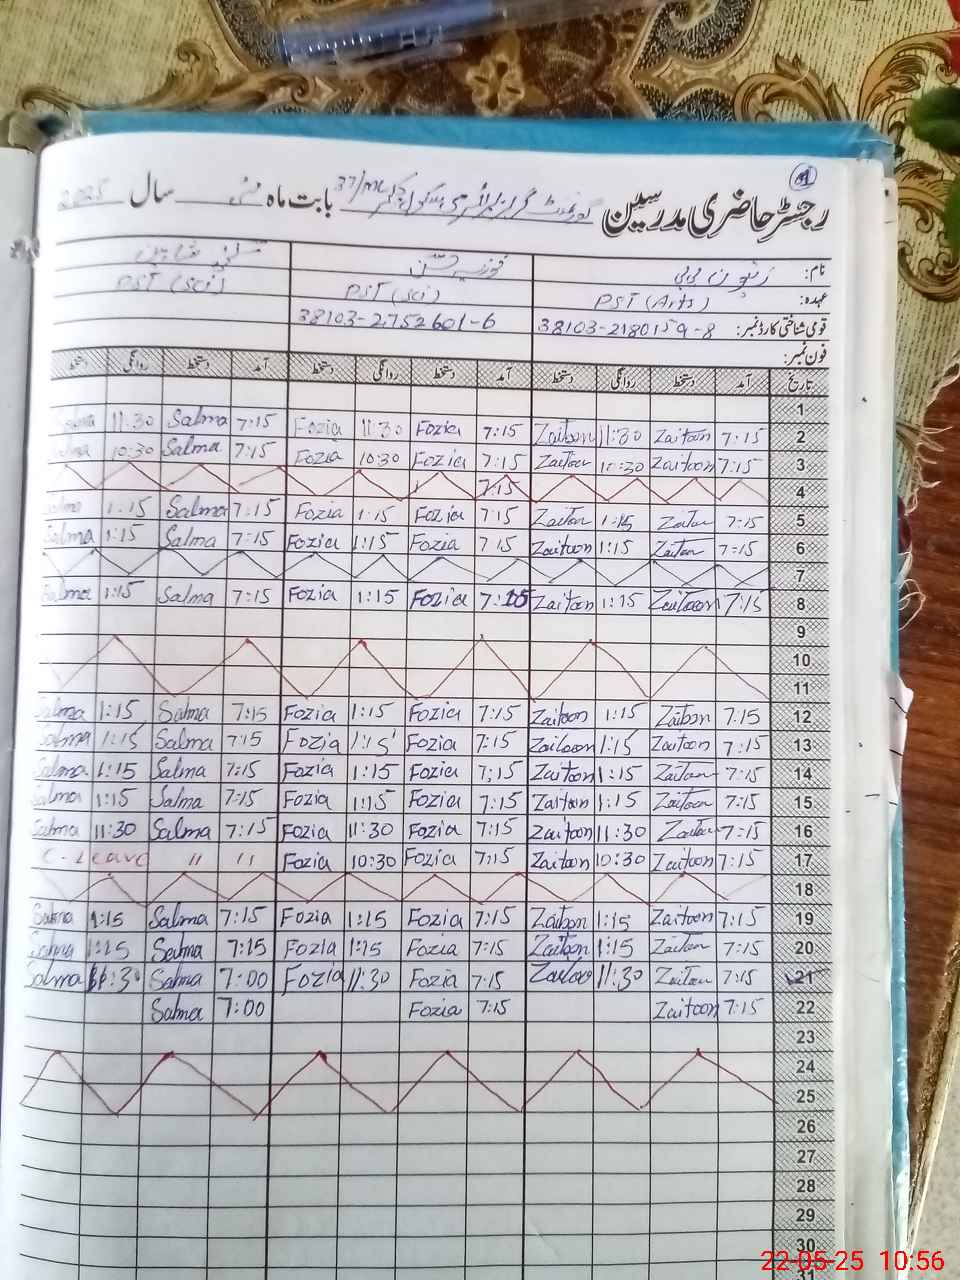 رجسٹر حاضری مدرسین گورنمنٹ گرلز پرائمری سکول چک 37/ML بابت ماہ مئی سال 2025
نام: زیتون بی بی فوزیہ سلمیٰ شاہین
عہدہ: PST (Arts) PST (Sci) PST (Sci)
قومی شناختی کارڈ نمبر: 38103-2180159-8 38103-2752601-6
فون نمبر:
تاریخ آمد دستخط روانگی دستخط آمد دستخط روانگی دستخط آمد دستخط روانگی دستخط
1
Salma 11:30 Salma 7:15 Fozia 11:30 Fozia 7:15 Zaitoon 11:30 Zaitoon 7:15 2
Salma 10:30 Salma 7:15 Fozia 10:30 Fozia 7:15 Zaitoon 10:30 Zaitoon 7:15 3
7:15 4
Salma 1:15 Salma 7:15 Fozia 1:15 Fozia 7:15 Zaitoon 1:15 Zaitoon 7:15 5
Salma 1:15 Salma 7:15 Fozia 1:15 Fozia 7:15 Zaitoon 1:15 Zaitoon 7:15 6
7
Salma 1:15 Salma 7:15 Fozia 1:15 Fozia 7:15 Zaitoon 1:15 Zaitoon 7:15 8
9
10
11
Salma 1:15 Salma 7:15 Fozia 1:15 Fozia 7:15 Zaitoon 1:15 Zaitoon 7:15 12
Salma 1:15 Salma 7:15 Fozia 1:15 Fozia 7:15 Zaitoon 1:15 Zaitoon 7:15 13
Salma 1:15 Salma 7:15 Fozia 1:15 Fozia 7:15 Zaitoon 1:15 Zaitoon 7:15 14
Salma 1:15 Salma 7:15 Fozia 1:15 Fozia 7:15 Zaitoon 1:15 Zaitoon 7:15 15
Salma 11:30 Salma 7:15 Fozia 11:30 Fozia 7:15 Zaitoon 11:30 Zaitoon 7:15 16
C-Leave " " Fozia 10:30 Fozia 7:15 Zaitoon 10:30 Zaitoon 7:15 17
18
Salma 1:15 Salma 7:15 Fozia 1:15 Fozia 7:15 Zaitoon 1:15 Zaitoon 7:15 19
Salma 1:15 Salma 7:15 Fozia 1:15 Fozia 7:15 Zaitoon 1:15 Zaitoon 7:15 20
Salma 11:30 Salma 7:00 Fozia 11:30 Fozia 7:15 Zaitoon 11:30 Zaitoon 7:15 21
Salma 7:00 Fozia 7:15 Zaitoon 7:15 22
23
24
25
26
27
28
29
30
31
22-05-25 10:56